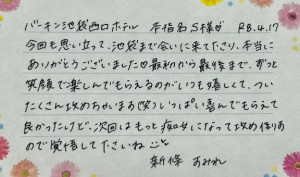 バーキン池袋西口ホテル 本指名S様が R8.4.17
今回も思い立って、池袋まで会いに来て下さり、本当に
ありがとうございました 最初から最後まで、ずっと
笑顔で楽しんでもらえるのがいつも嬉しくて、つい
たくさん攻めちゃいます(笑) いっぱい喜んでもらえて
良かったけど、次回はもっと痴女になって攻め作りあ
ので覚悟して下さいね
新條 あみれ